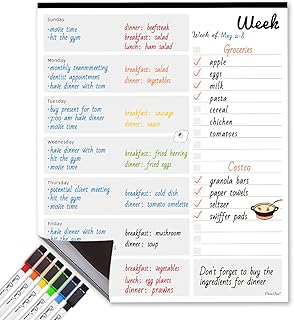 Week
Week of: May 2-8
Sunday
· movie time
· hit the gym
dinner: beefsteak
breakfast: salad
lunch: ham salad
Monday
· monthly teammeeting
· dentist appointment
· have dinner with tom
breakfast: salad
dinner: vegetables
Tuesday
· buy present for tom
· 7:00 am have dinner
· movie time
breakfast: sausage
dinner: sauce
Wednesday
· have dinner with tom
· hit the gym
· movie time
breakfast: fried herring
dinner: fried eggs
Thursday
· potential client meeting
· hit the gym
· have dinner with tom
breakfast: cold dish
dinner: tomato omelette
Friday
· have dinner with tom
· movie time
breakfast: mushroom
dinner: soup
breakfast: vegetables
lunch: egg plants
dinner: prawns
Groceries
apple
eggs
milk
pasta
cereal
chicken
tomatoes
Costco
granola bars
paper towels
seltzer
swiffer pads
Don't forget to buy the
ingredients for dinner